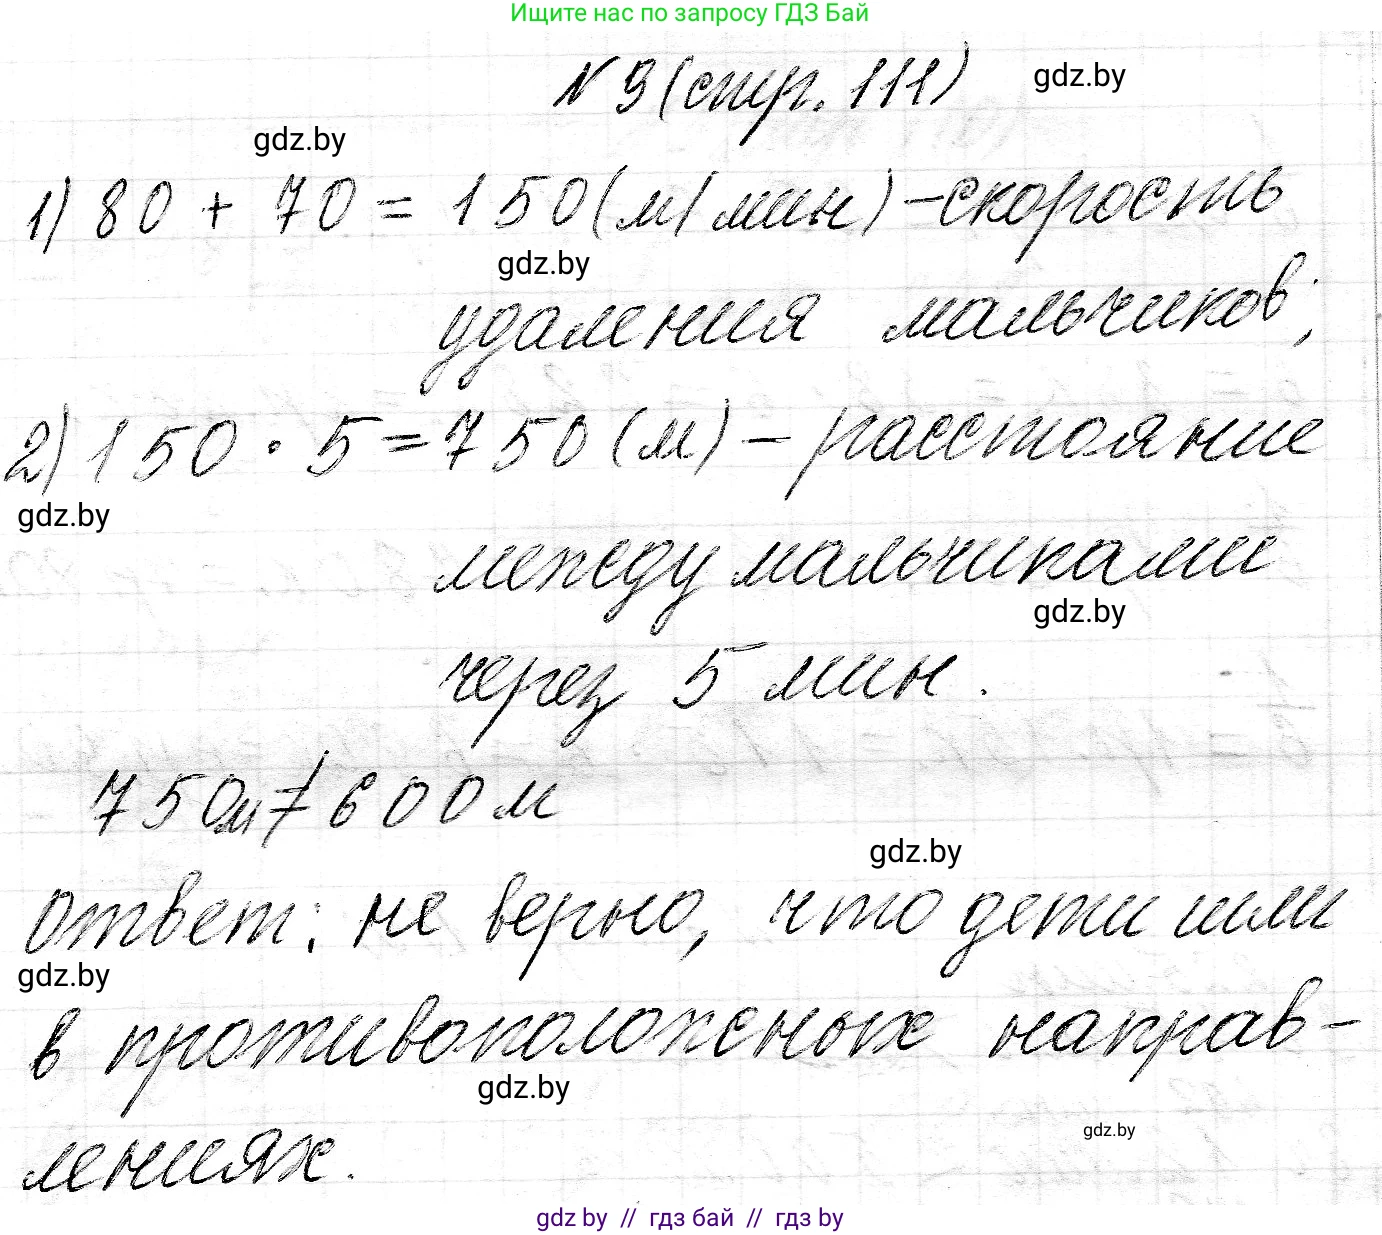 Ищите нас по запросу ГДЗ Бай
№ 9 (стр. 111)
gdz.by
gdz.by
1) 80 + 70 = 150 (м/мин) – скорость
gdz.by
удаления мальчиков;
2) 150 · 5 = 750 (м) – расстояние
gdz.by
между мальчиками
gdz.by
через 5 мин.
750м ≠ 600м
gdz.by
Ответ: не верно, что дети шли
gdz.by
в противоположных направ-
gdz.by
gdz.by
лениях.
gdz by // гдз бай // гдз by